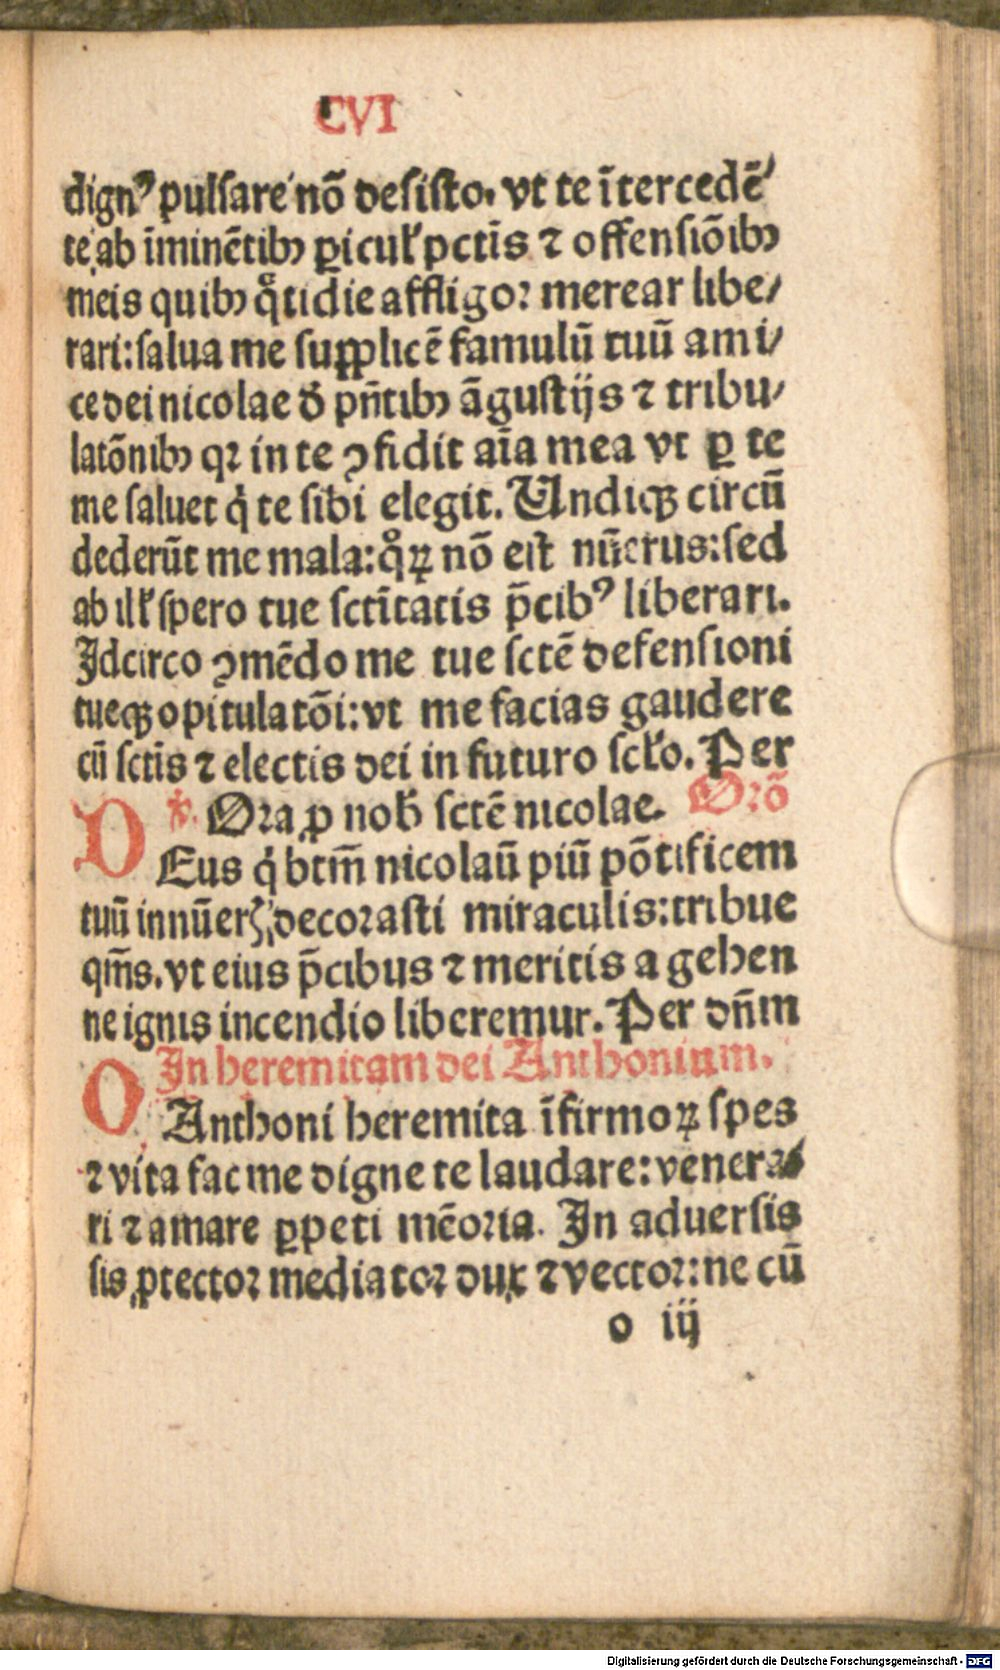 CVI
dignꝰ pulsare nō desisto. vt te ītercedē/
te ab īminētibꝫ ꝑicuł pctīs ⁊ offensiōibꝫ
meis quibꝫ q̊tidie affligoꝛ merear libe/
rari: salua me supplicē famulū tuū ami/
ce dei nicolae d̄ pn̄tibꝫ āgustijs ⁊ tribu/
latōnibꝫ qꝛ in te ꝯfidit aīa mea vt ꝑ te
me saluet q̇ te sibi elegit. Undiqꝫ circū
dederūt me mala: q̊ꝝ nō est nūerus: sed
ab ilł spero tue sctītatis p̄cibꝰ liberari.
Idcirco ꝯmēdo me tue sctē defensioni
tueqꝫ opitulatōi: vt me facias gaudere
cū sctīs ⁊ electis dei in futuro scło. Per
℣. Oꝛa ꝓ nob̄ sctē nicolae. Oꝛō
DEus q̇ btm̄ nicolaū piū pōtificem
tuū innūerꝭ decoꝛasti miraculis: tribue
qm̄s. vt eius p̄cibus ⁊ meritis a gehen
ne ignis incendio liberemur. Per dn̄m
In heremitam dei Anthonium.
O Anthoni heremita īfirmoꝝ spes
⁊ vita fac me digne te laudare: venera/
ri ⁊ amare ꝑpeti mēoꝛia. In aduersis
sis ꝓtectoꝛ mediatoꝛ dux ⁊ vectoꝛ: ne cū
o iij
Digitalisierung gefördert durch die Deutsche Forschungsgemeinschaft - DFG